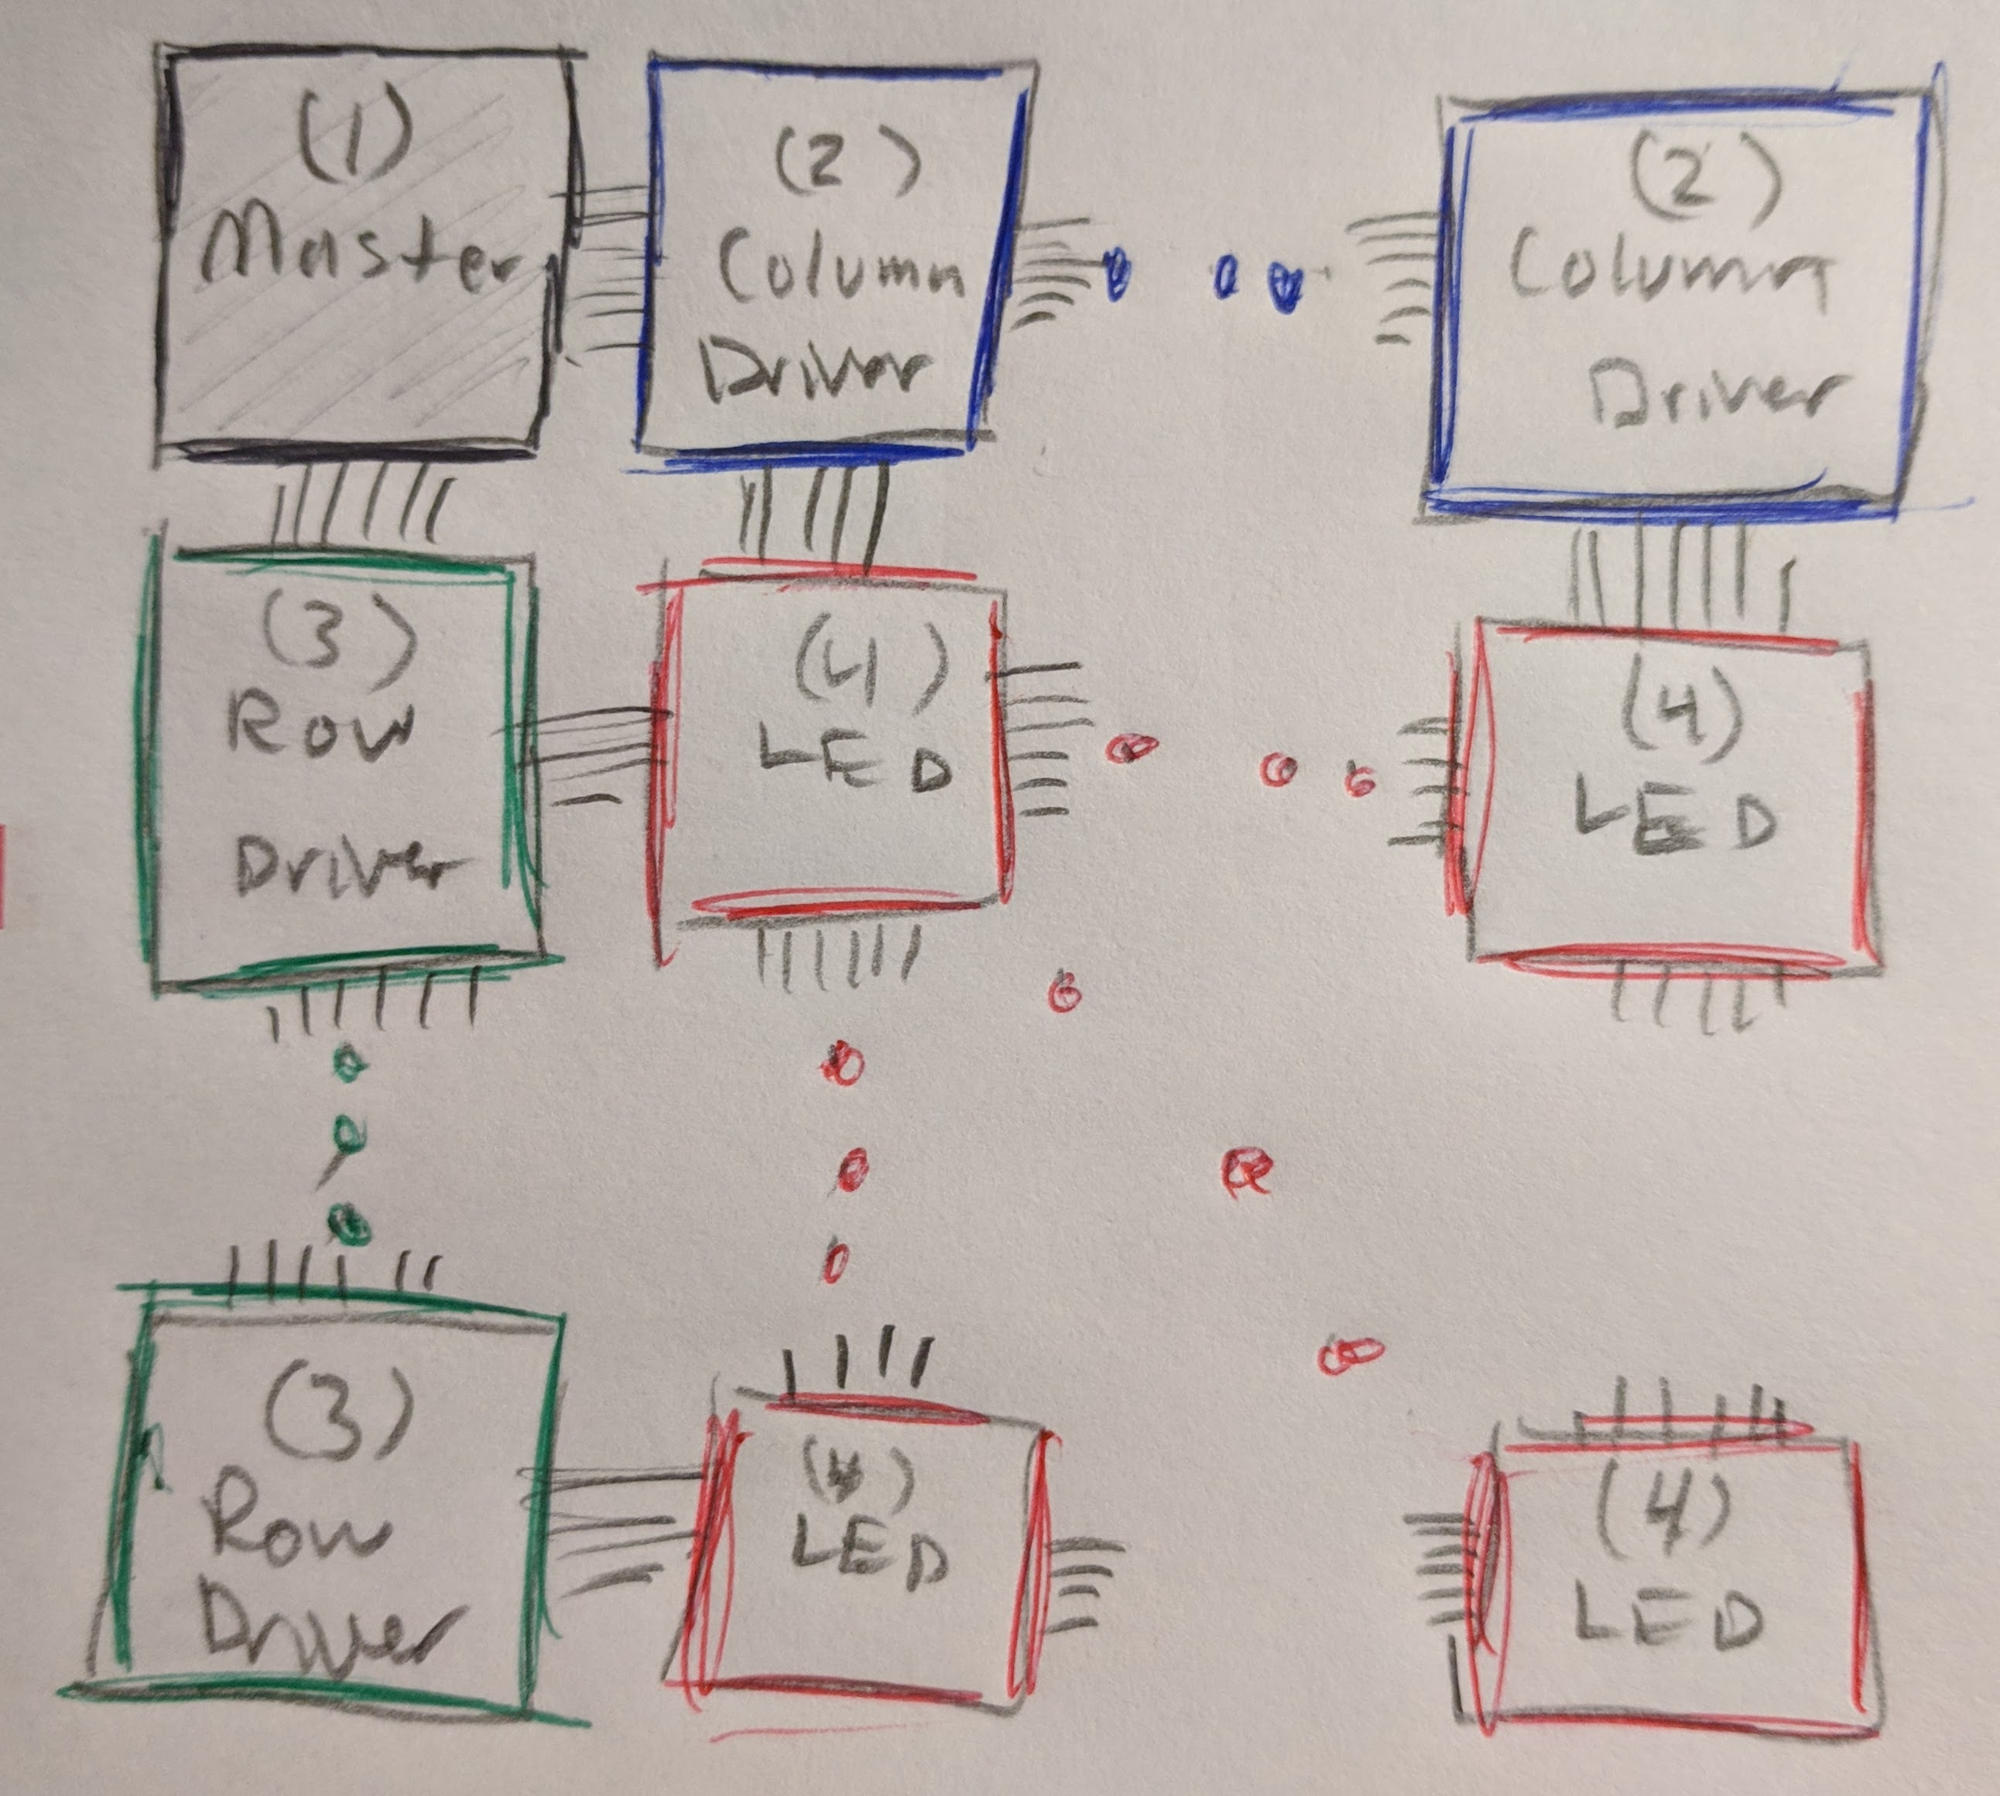 (1)
Master
(2)
Column
Driver
(2)
Column
Driver
(3)
Row
Driver
(4)
LED
(4)
LED
(3)
Row
Driver
(4)
LED
(4)
LED